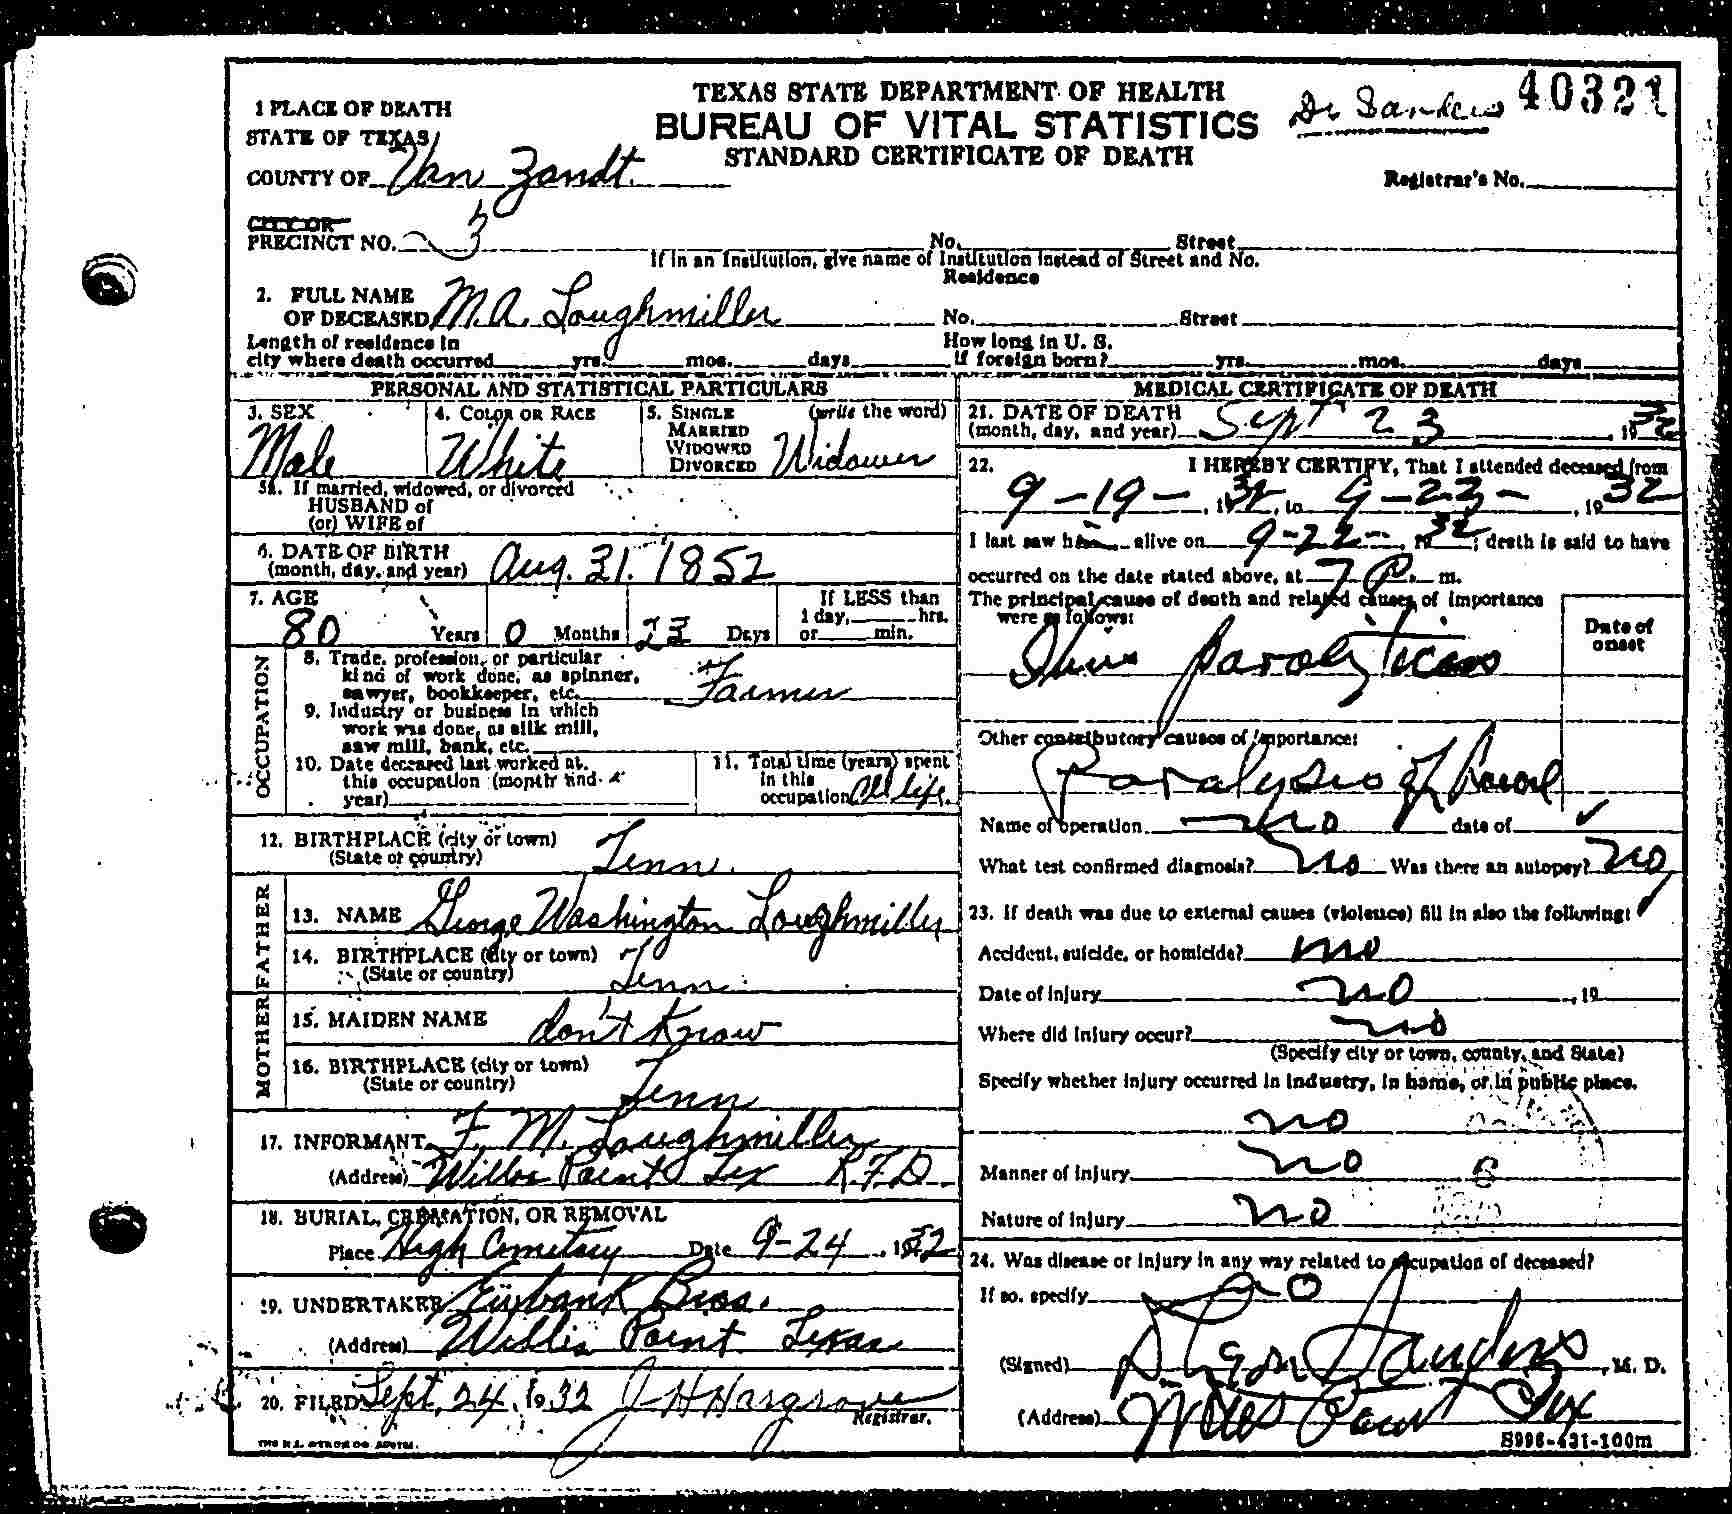 TEXAS STATE DEPARTMENT OF HEALTH
BUREAU OF VITAL STATISTICS
STANDARD CERTIFICATE OF DEATH
Dr Sanders 40321
1 PLACE OF DEATH
STATE OF TEXAS
COUNTY OF Van Zandt.
Registrar's No.
CITY OR
PRECINCT NO. 3 No. Street
If in an Institution, give name of Institution instead of Street and No.
Residence
2. FULL NAME
OF DECEASED M.A. Loughmiller No. Street
Length of residence in
city where death occurred yrs. mos. days
How long in U. S.
if foreign born? yrs. mos. days
PERSONAL AND STATISTICAL PARTICULARS
3. SEX
Male
4. COLOR OR RACE
White
5. SINGLE (write the word)
MARRIED
WIDOWED
DIVORCED Widower
5a. If married, widowed, or divorced
HUSBAND of
(or) WIFE of
6. DATE OF BIRTH
(month, day, and year) Aug. 31. 1852
7. AGE
80 Years 0 Months 23 Days
If LESS than
1 day, hrs.
or min.
OCCUPATION
8. Trade, profession, or particular
kind of work done, as spinner,
sawyer, bookkeeper, etc. Farmer
9. Industry or business in which
work was done, as silk mill,
saw mill, bank, etc.
10. Date deceased last worked at
this occupation (month and
year)
11. Total time (years) spent
in this
occupation All life.
12. BIRTHPLACE (city or town)
(State or country) Tenn.
FATHER
13. NAME George Washington Loughmiller
14. BIRTHPLACE (city or town)
(State or country) Tenn.
MOTHER
15. MAIDEN NAME don't Know
16. BIRTHPLACE (city or town)
(State or country) Tenn
17. INFORMANT F. M. Loughmiller
(Address) Wills Point Tex R.F.D.
18. BURIAL, CREMATION, OR REMOVAL
Place High Cemetary Date 9-24, 1932
19. UNDERTAKER Eubank Bros.
(Address) Willis Point Texas
20. FILED Sept, 24, 1932 J H Hargrove
Registrar.
MEDICAL CERTIFICATE OF DEATH
21. DATE OF DEATH
(month, day, and year) Sept 23, 1932
22. I HEREBY CERTIFY, That I attended deceased from
9-19-, 1932, to 9-23-, 1932
I last saw him alive on 9-22-, 1932; death is said to have
occurred on the date stated above, at 7 P. m.
The principal cause of death and related causes of importance
were as follows:
Date of
onset
Other contributory causes of importance:
Paralysis of
Name of operation no date of
What test confirmed diagnosis? No Was there an autopsy? no
23. If death was due to external causes (violence) fill in also the following:
Accident, suicide, or homicide? no
Date of injury no, 19
Where did injury occur? no
(Specify city or town, county, and State)
Specify whether injury occurred in industry, in home, or in public place.
no
Manner of injury no
Nature of injury no
24. Was disease or injury in any way related to occupation of deceased?
If so, specify no
(Signed) Sanders, M. D.
(Address) Wills Point Tex
S996-431-100m